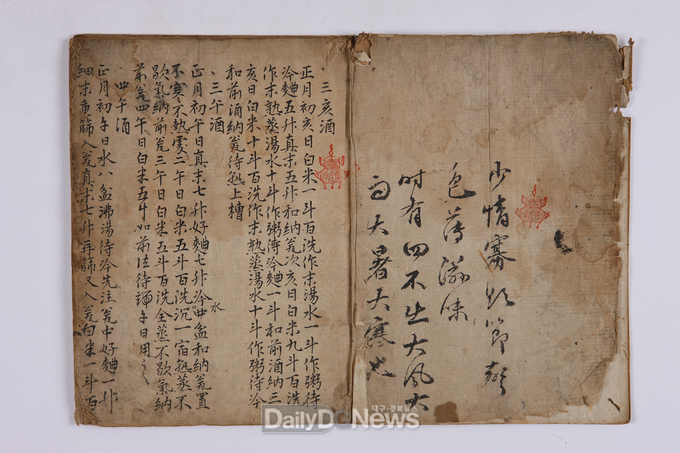 少情寡欲節聲
色薄滋味
時有四不出大風大
雨大暑大寒也
三亥酒
正月初亥日白米一斗百洗作末湯水一斗作粥待
冷麯五升真末五升和納瓮次亥日白米九斗百洗
作末熟蒸湯水十斗作粥待冷麯一斗和前酒納三
亥日白米十斗百洗作末熟蒸湯水十斗作粥待冷
和前酒納瓮待熟上槽
三午酒
正月初午日真末七升好麯七升冷水四盆和納瓮置
不寒不熱處二午日白米五斗百洗沉一宿熟蒸不
歇氣納前瓮三午日白米五斗百洗全蒸不歇氣納
前瓮四午日白米五斗如前法待端午日用之
四午酒
正月初午日水八盆沸湯待冷先注瓮中好麯一升
細末重篩入瓮真末七升再篩又入瓮白米一斗百
대구·경북뉴스
DailyDgNews